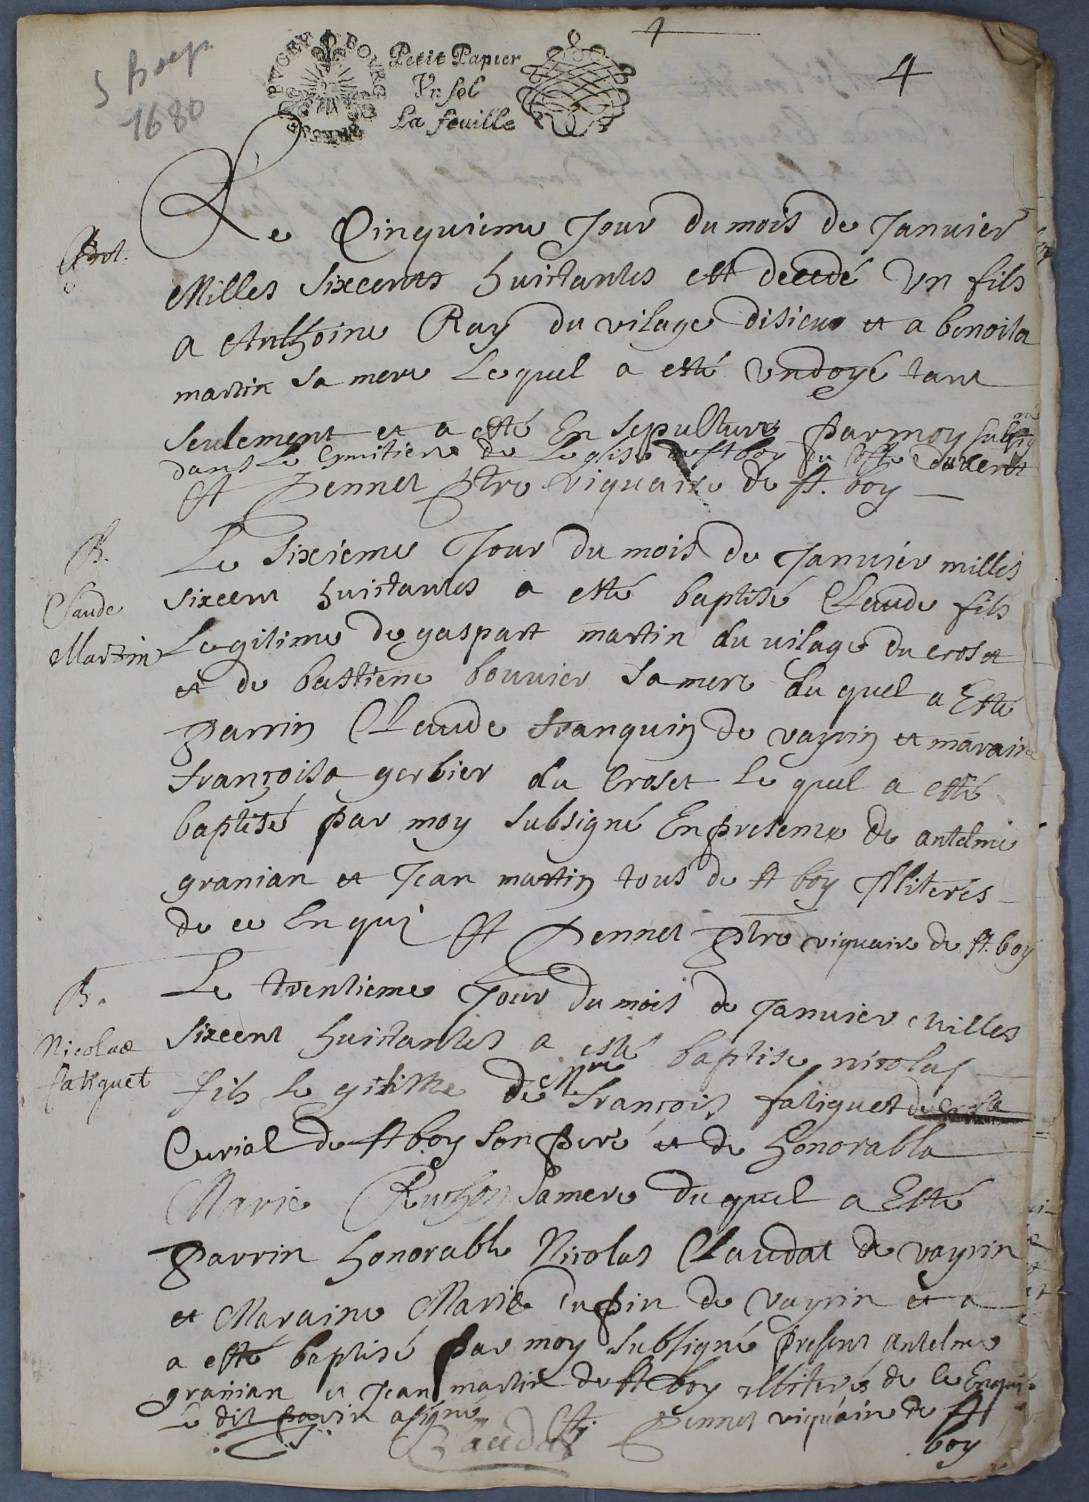 S Boys
1680
BVGEY BOVRG
Petit Papier
Vn sol
La feuille
4
Le Cinquieme Jour du mois de Janvier
Milles sixcents huictantes est decedé Un fils
a Anthoine Ray du vilage disieu et a benoita
martin sa mere Lequel a esté undoyé tant
seulement et a esté En sepulture par moy subsigne
dans Le cymitiere de Leglise de st boy
St Pennet ptre viquaire de st. boy
B.
Claude
Martin
Le sixieme Jour du mois de Janvier milles
sixcent huictantes a esté baptisé Claude fils
Legitime de gaspart martin du vilage du croset
et de bastiene bouvier sa mere du quel a Esté
parrin Claude franquin de vayrin et maraine
françoisa gerbier du Croset Le quel a esté
baptisé par moy subsigné En presence de antelme
granian et Jean martin tous de st boy Illiterés
de ce Enquis St Pennet ptre viquaire de st. boy
B.
Nicolas
faliquet
Le Ventieme Jour du mois de Janvier Milles
sixcent huictantes a esté baptise nicolas
fils Le gitime de Mre françois faliquet
Curial de st boy son pere et de honorable
Marie Ruchon sa mere du quel a Esté
parrin honorable Nicolas Claudat de vayrin
et Maraine Marie dupin de vayrin et a
a esté baptisé par moy subsigné present antelme
granian et Jean martin de st boy illiterés de ce Enquis
Le dit parin a signé St Pennet viquaire de st
boy
Claudat